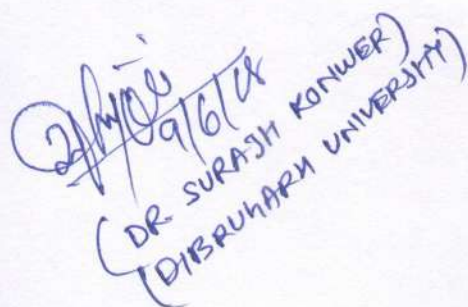 9/6/18
(DR. SURAJH KONWER)
(DIBRUHARH UNIVERSITY)